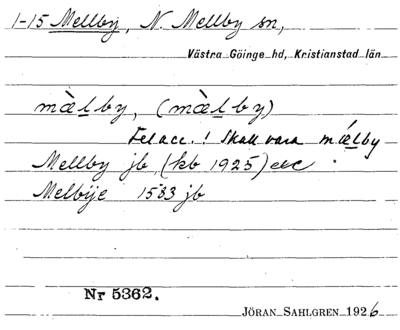 1-15 Mellby, N. Mellby sn,
Västra Göinge hd, Kristianstad län
mæ̀lby, (mæ̀lby)
Fel acc.! Skall vara mǽlby
Mellby jb (kb 1925) etc
Melbije 1583 jb
Nr 5362.
JÖRAN SAHLGREN 1926